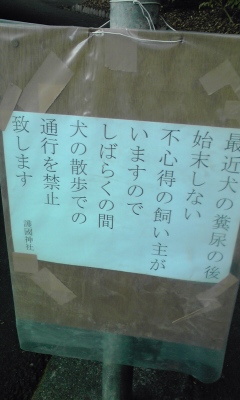 最近犬の糞尿の後
始末しない
不心得の飼い主が
いますので
しばらくの間
犬の散歩での
通行を禁止
致します
護國神社